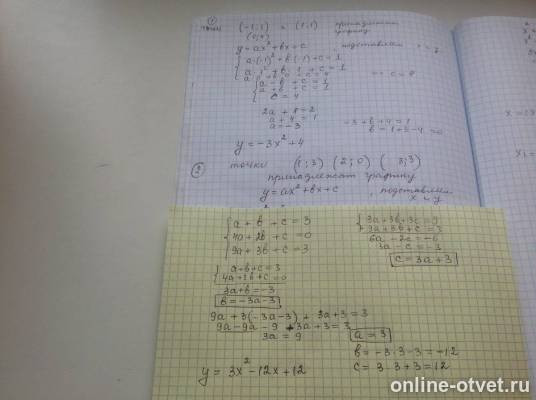 ①
точки (-1;1) и (1;1) принадлежат
(0;4) графику
y = ax² + bx + c , подставляем
{ a·(-1)² + b·(-1) + c = 1
a·1² + b·1 + c = 1
=> c = 4
{ a - b + c = 1
a + b + c = 1
c = 4
2a + 8 = 2
a + 4 = 1
a = -3
-3 + b + 4 = 1
b = 1 + 3 - 4 = 0
y = -3x² + 4
② точки (1;3) (2;0) (3;3)
принадлежат графику
y = ax² + bx + c , подставляем
x и y
{ a + b + c = 3
4a + 2b + c = 0
9a + 3b + c = 3
{ 3a + 3b + 3c = 9
9a + 3b + c = 3
6a - 2c = -6
3a - c = -3
c = 3a + 3
{ a + b + c = 3
4a + 2b + c = 0
3a + b = -3
b = -3a - 3
9a + 3(-3a - 3) + 3a + 3 = 3
9a - 9a - 9 + 3a + 3 = 3
3a = 9
a = 3
b = -3·3 - 3 = -12
c = 3·3 + 3 = 12
y = 3x² - 12x + 12
online-otvet.ru